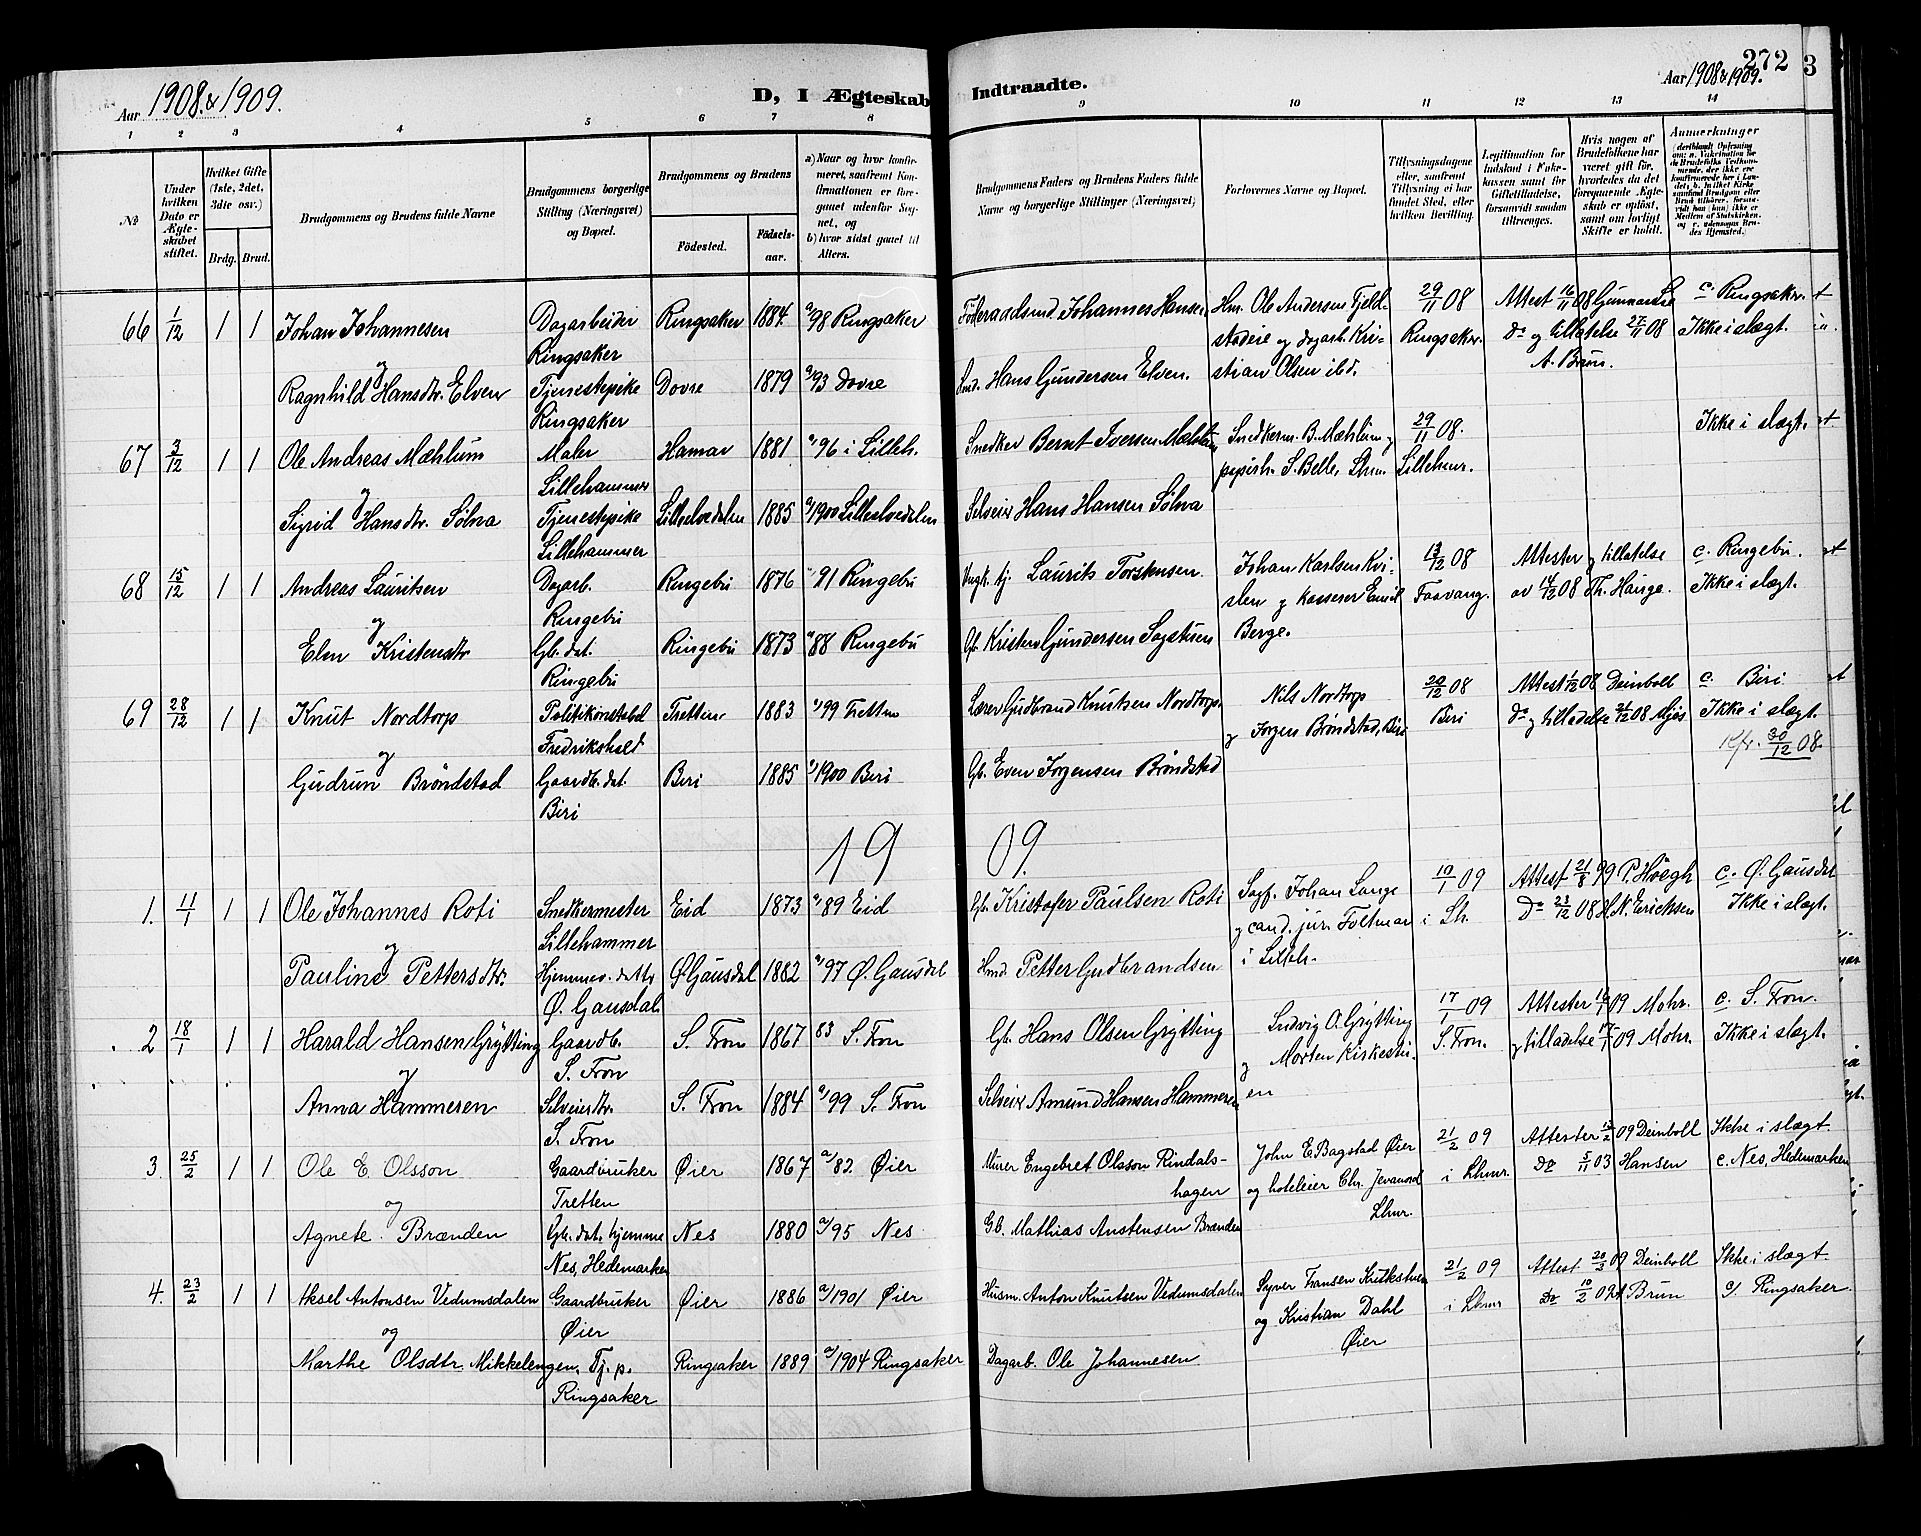 Aar 1908 & 1909.
D, I Ægteskab
Indtraadte.
272
3
Aar 1908 & 1909.
1 2 3 4 5 6 7 8 9 10 11 12 13 14
No
Under hvilken Dato er Ægteskabet stiftet.
Hvilket Gifte (1ste, 2det, 3dte osv.)
Brdg. Brud.
Brudgommens og Brudens fulde Navne
Brudgommens borgerlige Stilling (Næringsvei) og Bopæl.
Brudgommens og Brudens
Födested.
Födselsaar.
a) Naar og hvor konfirmeret, saafremt Konfirmationen er foregaaet udenfor Sognet, og
b) hvor sidst gaaet til Alters.
Brudgommens Faders og Brudens Faders fulde Navne og borgerlige Stillinger (Næringsvei)
Forlovernes Navne og Bopæl.
Tillysningsdagene eller, saafremt Tillysning ei har fundet Sted, efter hvilken Bevilling.
Legitimation for Indskud i Enkekassen samt for Giftetilladelse, forsaavidt saadan tiltrænges.
Hvis nogen af Brudefolkene har været gift för, hvorledes da det foregaaende Ægteskab er oplöst, samt om lovligt Skifte er holdt.
Anmerkninger
66 1/12 1 1 Johan Johannesen Dagarbeider Ringsaker 1884 a/98 Ringsaker Föderaadsmd. Johannes Hansen Hm. Ole Andersen Fjeld- 29/11 08 Attest 16/11 08 Gunnar Lie c. Ringsaker.
og Ringsaker stadeie og dagarb. Kri- Ringsaker. Do og tilladelse 27/11 08 Ikke i slægt.
Ragnhild Hansdtr. Elven Tjenestepike Dovre 1879 a/93 Dovre Smd. Hans Gundersen Elven. stian Olsen ibd. A. Brun.
Ringsaker
67 3/12 1 1 Ole Andreas Mæhlum Maler Hamar 1881 a/96 i Lilleh. Snedker Bernt Iversen Mæhlum Snedkerm. B. Mæhlum og 29/11 08. Ikke i slægt.
og Lillehammer S. Belle, Lhm. Lillehmr.
Sigrid Hansdtr. Sölna Tjenestepike Lilleelvedalen 1885 a/1900 Lilleelvedalen Selveier Hans Hansen Sölna
Lillehammer
68 15/12 1 1 Andreas Lauritsen Dagarb. Ringebu 1876 91 Ringebu Ungk. tj. Laurits Torstensen. Johan Karlsen Kvi- 13/12 08 Attester og tilladelse c. Ringebu.
og Ringebu slen og Kasserer Emil Faavang. av 14/12 08 Th. Hauge. Ikke i slægt.
Elen Kristensdtr. Gb. dat. Ringebu 1873 88 Ringebu Gb. Kristen Gundersen Sagstuen Berge.
Ringebu
69 28/12 1 1 Knut Nordtorp Politikonstabel Tretten 1883 a/99 Tretten Lærer Gudbrand Knutsen Nordtorp. Nils Nordtorp 20/12 08 Attest 1/12 08 Deinboll c. Biri
og Fredrikshald og Jörgen Bröndstad, Biri Biri Do og tilladelse 21/12 08 Mjös Ikke i slægt.
30/12 08.
Gudrun Bröndstad Gaardb. dat. Biri 1885 a/1900 Biri Gb. Even Jörgensen Bröndstad
Biri
1909.
1. 11/1 1 1 Ole Johannes Roti Snedkermester Eid 1873 a/89 Eid Gb. Kristofer Paulsen Roti Sagf. Johan Lange 10/1 09 Attest 21/8 99 P. Höegh c. Ø. Gausdal
og Lillehammer og cand. jur. Foltmar i Lh. Do 23/12 08 H. N. Erichsen Ikke i slægt.
Pauline Pettersdtr. Hjemmev. datter Ø. Gausdal 1882 a/97 Ø. Gausdal Hmd. Petter Gudbrandsen i Lilleh.
Ø. Gausdal
2 18/1 1 1 Harald Hansen Grytting Gaardb. S. Fron 1867 83 S. Fron Gb. Hans Olsen Grytting Ludvig O. Grytting 17/1 09 Attester 16/1 09 Mohr. c. S. Fron.
og S. Fron og Morten Kirkestu- S. Fron. og tilladelse 17/1 09 Mohr. Ikke i slægt.
Anna Hammeren Selveierdtr. S. Fron 1884 a/99 S. Fron Selveier Amund Hansen Hammeren en
S. Fron
3. 25/2 1 1 Ole E. Olsson Gaardbruker Øier 1867 a/82. Øier Murer Engebret Olsson Rindals- John E. Bagstad Øier 21/2 09 Attester 12/2 09 Deinboll Ikke i slægt.
og Tretten hagen og hoteleier Chr. Jevanord i Lhmr. Do 5/11 03 Hansen c. Nes, Hedemarken
Agnete Brænden Gb. dat. hjemme Nes 1880 a/95 Nes Gb. Mathias Anstensen Brænden Lhmr.
Nes, Hedemarken
4. 23/2 1 1 Aksel Antonsen Vedumsdalen Gaardbruker Øier 1886 a/1901 Øier Husm. Anton Knutsen Vedumsdalen Syver Fransen 21/2 09 Attest 20/3 09 Deinboll Ikke i slægt
og Øier og Kristian Dahl i Lhmr Do 10/2 09 Brun c/ Ringsaker
Marthe Olsdtr. Mikkelengen, Tj. p. Ringsaker 1889 a/1904 Ringsaker Dagarb. Ole Johannesen Øier
Ringsaker